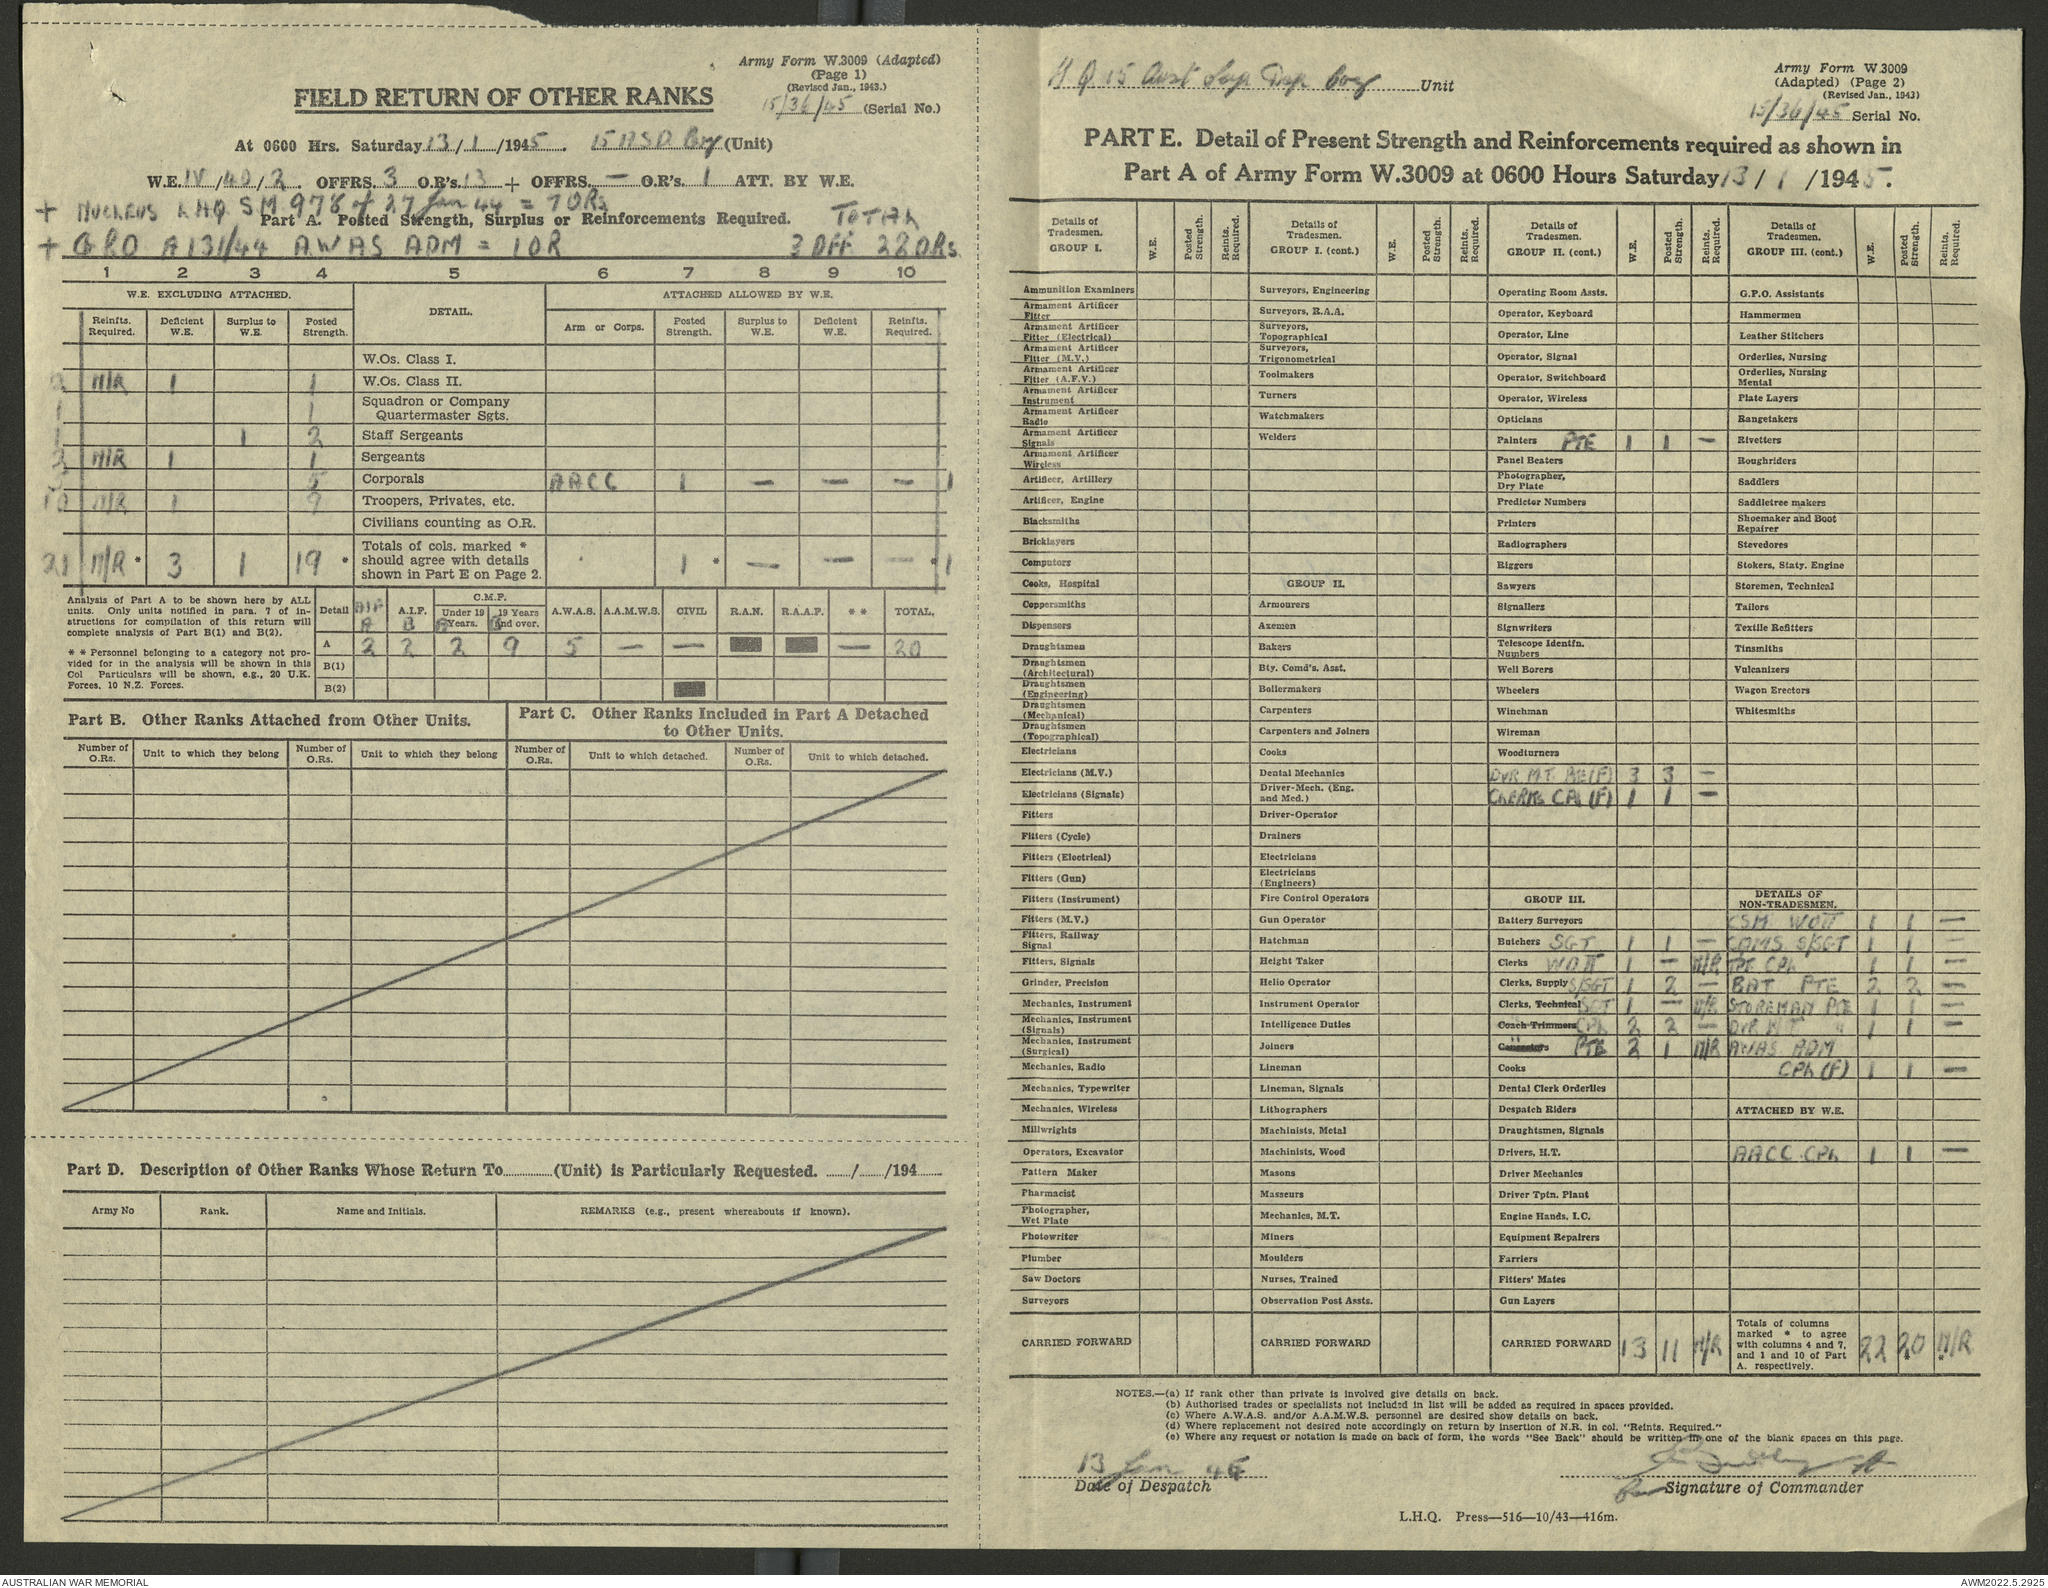 Army Form W.3009 (Adapted)
(Page 1)
(Revised Jan., 1943.)
15/36/45 (Serial No.)
FIELD RETURN OF OTHER RANKS
At 0600 Hrs. Saturday 13/1/1945. 15 A.S.D. Coy (Unit)
W.E. IV/40/2. OFFRS. 3 O.R's. 13 + OFFRS. — O.R's. 1 ATT. BY W.E.
+ NUCLEUS LHQ SM 978 of 27 Jan 44 = 7 ORs
Part A. Posted Strength, Surplus or Reinforcements Required. TOTAL
+ GRO A131/44 AWAS ADM = 1 OR 3 OFF 22 ORs.
1 2 3 4 5 6 7 8 9 10
W.E. EXCLUDING ATTACHED. DETAIL. ATTACHED ALLOWED BY W.E.
Reinfts. Required. Deficient W.E. Surplus to W.E. Posted Strength. Arm or Corps. Posted Strength. Surplus to W.E. Deficient W.E. Reinfts. Required.
W.Os. Class I.
2 N/R 1 1 W.Os. Class II.
1 1 Squadron or Company Quartermaster Sgts.
1 1 2 Staff Sergeants
2 N/R 1 1 Sergeants
5 5 Corporals AACC 1 — — — 1
10 N/R 1 9 Troopers, Privates, etc.
Civilians counting as O.R.
21 N/R * 3 1 19 * Totals of cols. marked * should agree with details shown in Part E on Page 2. 1 * — — — * 1
Analysis of Part A to be shown here by ALL units. Only units notified in para. 7 of instructions for compilation of this return will complete analysis of Part B(1) and B(2).
* * Personnel belonging to a category not provided for in the analysis will be shown in this Col Particulars will be shown, e.g., 20 U.K. Forces, 10 N.Z. Forces.
Detail AIF A A.I.F. B C.M.F. Under 19 Years. A 19 Years and over. B A.W.A.S. A.A.M.W.S. CIVIL R.A.N. R.A.A.F. * * TOTAL.
A 2 2 2 9 5 — — — 20
B(1)
B(2)
Part B. Other Ranks Attached from Other Units.
Part C. Other Ranks Included in Part A Detached to Other Units.
Number of O.Rs. Unit to which they belong Number of O.Rs. Unit to which they belong Number of O.Rs. Unit to which detached. Number of O.Rs. Unit to which detached.
Part D. Description of Other Ranks Whose Return To (Unit) is Particularly Requested. / /194
Army No Rank. Name and Initials. REMARKS (e.g., present whereabouts if known).
H.Q. 15 Aust Sup Dep Coy Unit
Army Form W.3009
(Adapted) (Page 2)
(Revised Jan., 1943)
15/36/45 Serial No.
PART E. Detail of Present Strength and Reinforcements required as shown in
Part A of Army Form W.3009 at 0600 Hours Saturday 13/1/1945.
Details of Tradesmen. GROUP I. W.E. Posted Strength. Reints. Required.
Ammunition Examiners
Armament Artificer Fitter
Armament Artificer Fitter (Electrical)
Armament Artificer Fitter (M.V.)
Armament Artificer Fitter (A.F.V.)
Armament Artificer Instrument
Armament Artificer Radio
Armament Artificer Signals
Armament Artificer Wireless
Artificer, Artillery
Artificer, Engine
Blacksmiths
Bricklayers
Computors
Cooks, Hospital
Coppersmiths
Dispensers
Draughtsmen
Draughtsmen (Architectural)
Draughtsmen (Engineering)
Draughtsmen (Mechanical)
Draughtsmen (Topographical)
Electricians
Electricians (M.V.)
Electricians (Signals)
Fitters
Fitters (Cycle)
Fitters (Electrical)
Fitters (Gun)
Fitters (Instrument)
Fitters (M.V.)
Fitters, Railway Signal
Fitters, Signals
Grinder, Precision
Mechanics, Instrument
Mechanics, Instrument (Signals)
Mechanics, Instrument (Surgical)
Mechanics, Radio
Mechanics, Typewriter
Mechanics, Wireless
Millwrights
Operators, Excavator
Pattern Maker
Pharmacist
Photographer, Wet Plate
Photowriter
Plumber
Saw Doctors
Surveyors
CARRIED FORWARD
Details of Tradesmen. GROUP I. (cont.) W.E. Posted Strength. Reints. Required.
Surveyors, Engineering
Surveyors, R.A.A.
Surveyors, Topographical
Surveyors, Trigonometrical
Toolmakers
Turners
Watchmakers
Welders
GROUP II.
Armourers
Axemen
Bakers
Bty. Comd's. Asst.
Boilermakers
Carpenters
Carpenters and Joiners
Cooks
Dental Mechanics
Driver-Mech. (Eng. and Med.)
Driver-Operator
Drainers
Electricians
Electricians (Engineers)
Fire Control Operators
Gun Operator
Hatchman
Height Taker
Helio Operator
Instrument Operator
Intelligence Duties
Joiners
Lineman
Lineman, Signals
Lithographers
Machinists, Metal
Machinists, Wood
Masons
Masseurs
Mechanics, M.T.
Miners
Moulders
Nurses, Trained
Observation Post Assts.
CARRIED FORWARD
Details of Tradesmen. GROUP II. (cont.) W.E. Posted Strength. Reints. Required.
Operating Room Assts.
Operator, Keyboard
Operator, Line
Operator, Signal
Operator, Switchboard
Operator, Wireless
Opticians
Painters PTE 1 1 —
Panel Beaters
Photographer, Dry Plate
Predictor Numbers
Printers
Radiographers
Riggers
Sawyers
Signallers
Signwriters
Telescope Identfn. Numbers
Well Borers
Wheelers
Winchman
Wireman
Woodturners
DVR M.T. PTE (F) 3 3 —
CLERKS CPL (F) 1 1 —
GROUP III.
Battery Surveyors
Butchers SGT 1 1 —
Clerks WO II 1 — N/R
Clerks, Supply S/SGT 1 2 —
Clerks, Technical SGT 1 — N/R
Coach Trimmers CPL 2 2 —
PTE 2 1 N/R
Cooks
Dental Clerk Orderlies
Despatch Riders
Draughtsmen, Signals
Drivers, H.T.
Driver Mechanics
Driver Tptn. Plant
Engine Hands, I.C.
Equipment Repairers
Farriers
Fitters' Mates
Gun Layers
CARRIED FORWARD 13 11 N/R
Details of Tradesmen. GROUP III. (cont.) W.E. Posted Strength. Reints. Required.
G.P.O. Assistants
Hammermen
Leather Stitchers
Orderlies, Nursing
Orderlies, Nursing Mental
Plate Layers
Rangetakers
Rivetters
Roughriders
Saddlers
Saddletree makers
Shoemaker and Boot Repairer
Stevedores
Stokers, Staty. Engine
Storemen, Technical
Tailors
Textile Refitters
Tinsmiths
Vulcanizers
Wagon Erectors
Whitesmiths
DETAILS OF NON-TRADESMEN.
CSM WO II 1 1 —
CQMS S/SGT 1 1 —
CPL 1 1 —
BAT PTE 2 2 —
STOREMAN PTE 1 1 —
DVR MT " 1 1 —
AWAS ADM
CPL (F) 1 1 —
ATTACHED BY W.E.
AACC CPL 1 1 —
Totals of columns marked * to agree with columns 4 and 7, and 1 and 10 of Part A. respectively. 22 20 * N/R *
NOTES.—(a) If rank other than private is involved give details on back.
(b) Authorised trades or specialists not included in list will be added as required in spaces provided.
(c) Where A.W.A.S. and/or A.A.M.W.S. personnel are desired show details on back.
(d) Where replacement not desired note accordingly on return by insertion of N.R. in col. "Reints. Required."
(e) Where any request or notation is made on back of form, the words "See Back" should be written in one of the blank spaces on this page.
13 Jan 45
Date of Despatch
Signature of Commander
L.H.Q. Press—516—10/43—416m.
AUSTRALIAN WAR MEMORIAL
AWM2022.5.2925